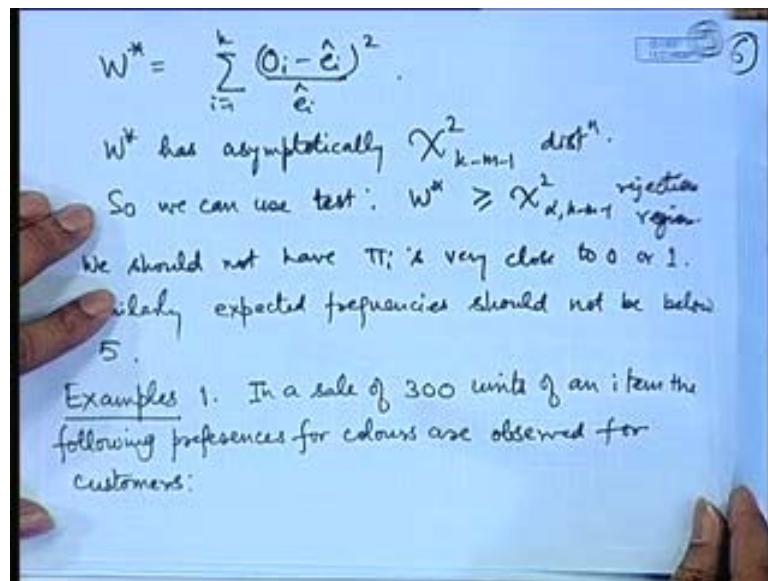 W* = Σ_{i=1}^{k} (O_i - ê_i)² / ê_i .
W* has asymptotically χ²_{k-m-1} distⁿ.
So we can use test: W* ≥ χ²_{α, k-m-1} rejection region
We should not have π_i's very close to 0 or 1.
ilarly expected frequencies should not be below
5.
Examples 1. In a sale of 300 units of an item the
following preferences for colours are observed for
customers:
6